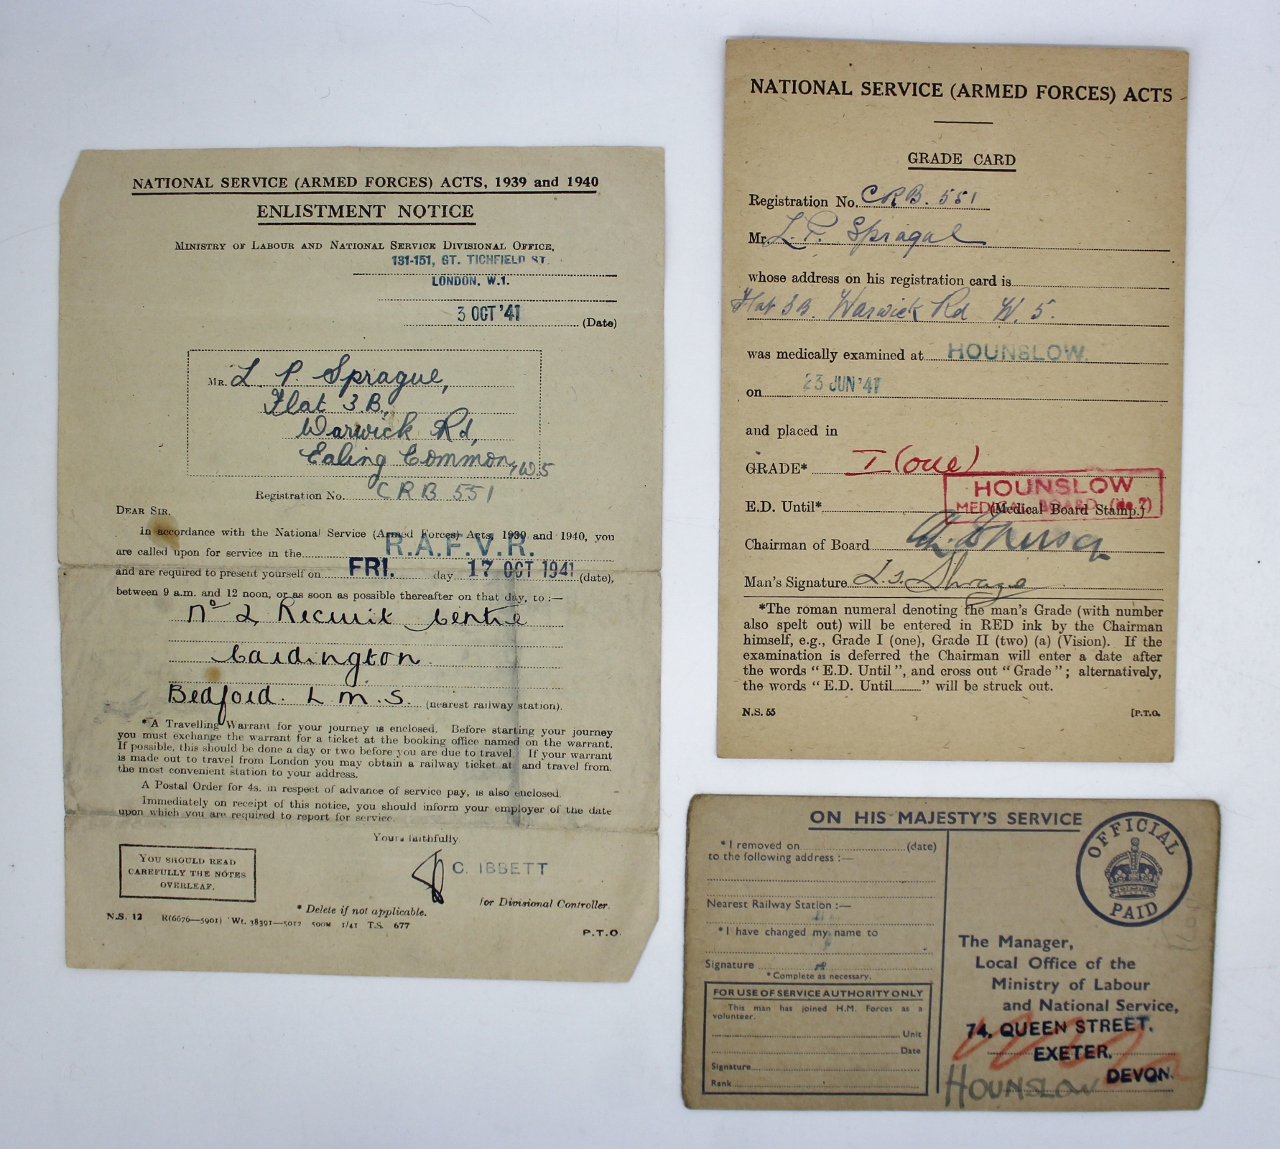 NATIONAL SERVICE (ARMED FORCES) ACTS, 1939 and 1940
ENLISTMENT NOTICE
MINISTRY OF LABOUR AND NATIONAL SERVICE DIVISIONAL OFFICE,
131-151, GT. TICHFIELD ST.
LONDON, W.1.
3 OCT '41 (Date)
MR. L. P. Sprague,
Flat 3.B,
Warwick Rd,
Ealing Common, W5
Registration No. CRB 551
DEAR SIR,
In accordance with the National Service (Armed Forces) Acts, 1939 and 1940, you
are called upon for service in the R.A.F.V.R.
and are required to present yourself on FRI. day 17 OCT 1941 (date),
between 9 a.m. and 12 noon, or as soon as possible thereafter on that day, to :—
No 2 Recruit Centre
Cardington
Bedford. L M.S. (nearest railway station).
* A Travelling Warrant for your journey is enclosed. Before starting your journey
you must exchange the warrant for a ticket at the booking office named on the warrant.
If possible, this should be done a day or two before you are due to travel. If your warrant
is made out to travel from London you may obtain a railway ticket at, and travel from,
the most convenient station to your address.
A Postal Order for 4s. in respect of advance of service pay, is also enclosed.
Immediately on receipt of this notice, you should inform your employer of the date
upon which you are required to report for service.
Yours faithfully,
C. IBBETT
for Divisional Controller.
YOU SHOULD READ
CAREFULLY THE NOTES
OVERLEAF.
* Delete if not applicable.
N.S. 12 R(6676—5901) Wt. 38391—5017 500M 1/41 T.S. 677
P.T.O.
NATIONAL SERVICE (ARMED FORCES) ACTS
GRADE CARD
Registration No. CRB. 551
Mr. L. P. Sprague
whose address on his registration card is
Flat 3B. Warwick Rd W. 5.
was medically examined at HOUNSLOW
on 23 JUN '41
and placed in
GRADE* I (one)
HOUNSLOW
MEDICAL BOARD (No 2)
E.D. Until* (Medical Board Stamp.)
Chairman of Board
Man's Signature
*The roman numeral denoting the man's Grade (with number
also spelt out) will be entered in RED ink by the Chairman
himself, e.g., Grade I (one), Grade II (two) (a) (Vision). If the
examination is deferred the Chairman will enter a date after
the words "E.D. Until", and cross out "Grade"; alternatively,
the words "E.D. Until" will be struck out.
N.S. 55 [P.T.O.
ON HIS MAJESTY'S SERVICE
OFFICIAL
PAID
* I removed on (date)
to the following address :—
Nearest Railway Station :—
* I have changed my name to
Signature
* Complete as necessary.
FOR USE OF SERVICE AUTHORITY ONLY
This man has joined H.M. Forces as a
volunteer.
Unit
Date
Signature
Rank
The Manager,
Local Office of the
Ministry of Labour
and National Service,
74, QUEEN STREET,
EXETER,
DEVON.
HOUNSLOW